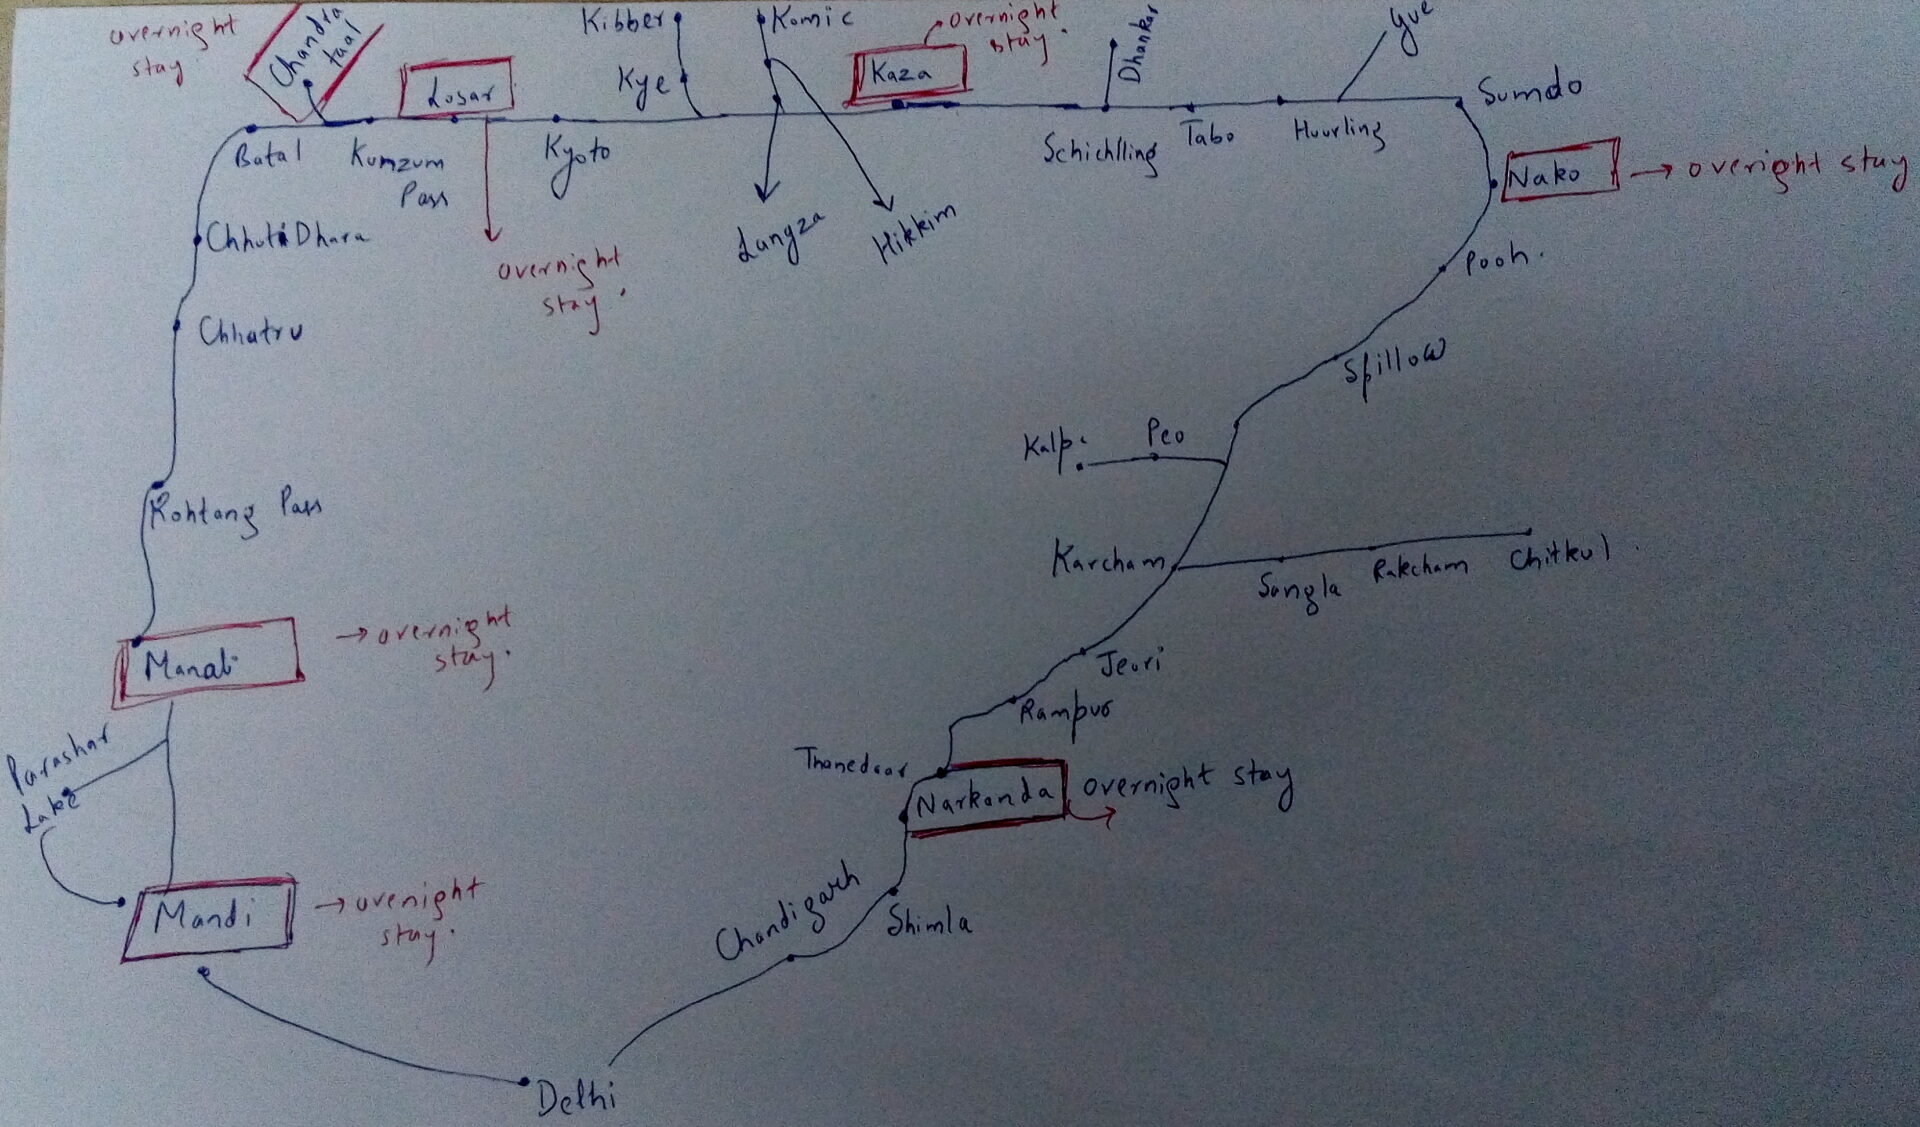 overnight
stay
Chandra
taal
Kibber
Komic
overnight
stay.
Gue
Losar
Kye
Kaza
Dhankar
Sumdo
Batal
Kumzum
Pass
Kyoto
Schichlling
Tabo
Huurling
Nako
→ overight stay
Langza
Hikkim
Chhoti Dhara
overnight
stay.
Pooh.
Chhatru
Spillow
Kalp
Peo
Rohtang Pass
Karcham
Sangla
Rakcham
Chitkul
Manali
→ overnight
stay.
Jeori
Rampur
Parashar
Lake
Thanedaar
Narkanda
overnight stay
Mandi
→ ovenight
stay.
Chandigarh
Shimla
Delhi